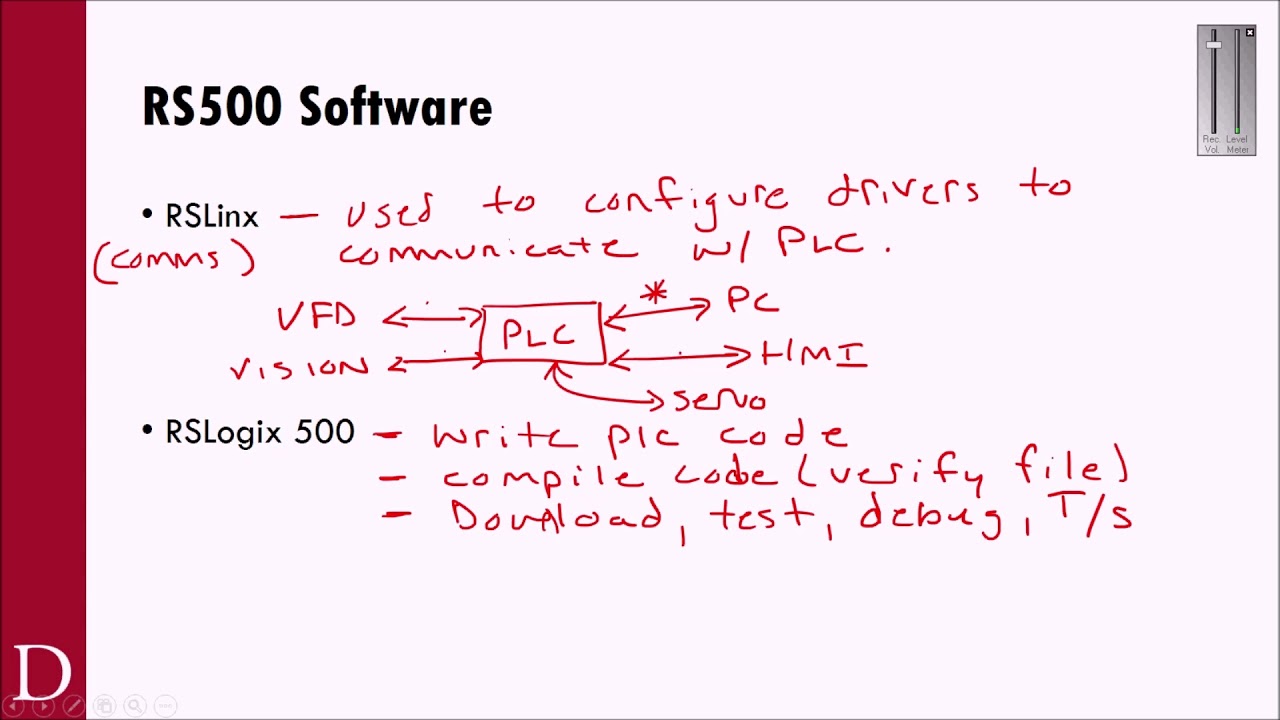 RS500 Software
Rec. Level
Vol. Meter
• RSLinx — used to configure drivers to
(comms) communicate w/ PLC.
VFD PLC * PC
VISION HMI
servo
• RSLogix 500 - Write plc code
- compile code (verify file)
- Download, test, debug, T/s
D